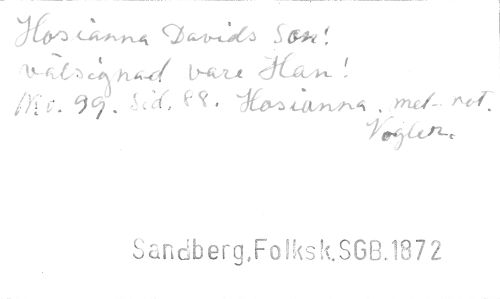 Hosianna Davids Son!
välsignad vare Han!
No. 99. Sid. 88. Hosianna. met- rot.
Vogler.
Sandberg,Folksk.SGB.1872